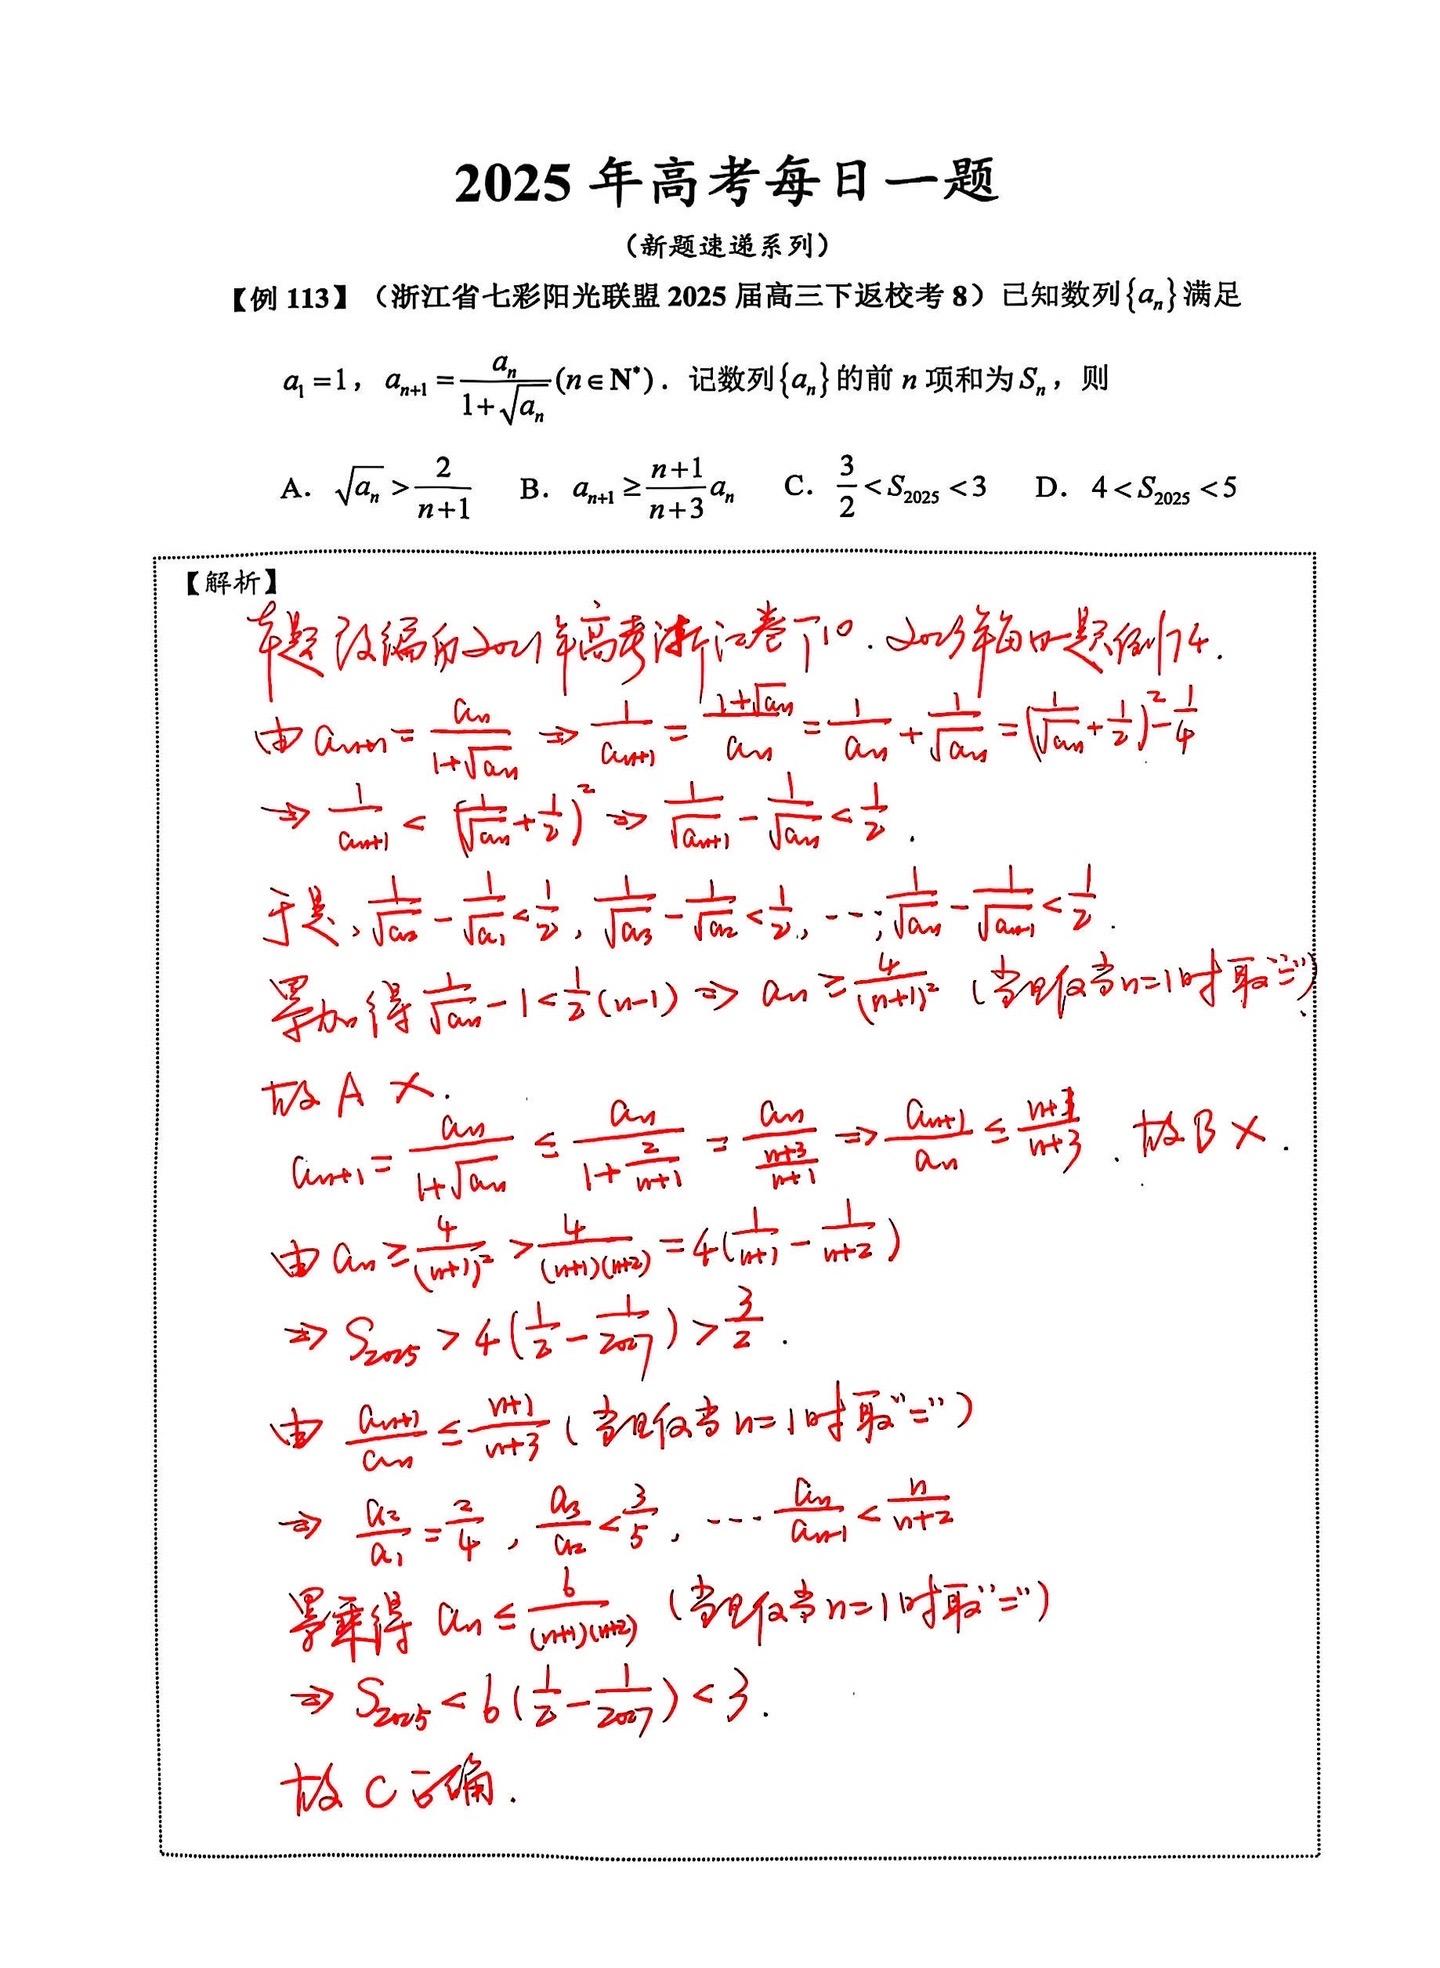 2025 年高考每日一题
（新题速递系列）
【例 113】（浙江省七彩阳光联盟 2025 届高三下返校考 8）已知数列{aₙ}满足
a₁=1，aₙ₊₁=aₙ/(1+√aₙ)(n∈N*)．记数列{aₙ}的前 n 项和为 Sₙ，则
A．√aₙ>2/(n+1) B．aₙ₊₁≥(n+1)/(n+3)aₙ C．3/2<S₂₀₂₅<3 D．4<S₂₀₂₅<5
【解析】
本题改编自2021年高考浙江卷T10．2023年每日一题例174．
由 aₙ₊₁=aₙ/(1+√aₙ) ⇒ 1/aₙ₊₁=(1+√aₙ)/aₙ=1/aₙ+1/√aₙ=(1/√aₙ+1/2)²-1/4
⇒ 1/aₙ₊₁<(1/√aₙ+1/2)² ⇒ 1/√aₙ₊₁-1/√aₙ<1/2．
于是，1/√a₂-1/√a₁<1/2，1/√a₃-1/√a₂<1/2，…，1/√aₙ-1/√aₙ₋₁<1/2．
累加得 1/√aₙ-1<1/2(n-1) ⇒ aₙ≥4/(n+1)²（当且仅当n=1时取"="）．
故 A ×．
aₙ₊₁=aₙ/(1+√aₙ)≤aₙ/(1+2/(n+1))=aₙ/((n+3)/(n+1)) ⇒ aₙ₊₁/aₙ≤(n+1)/(n+3)．故 B ×．
由 aₙ≥4/(n+1)²>4/((n+1)(n+2))=4(1/(n+1)-1/(n+2))
⇒ S₂₀₂₅>4(1/2-1/2027)>3/2．
由 aₙ₊₁/aₙ≤(n+1)/(n+3)（当且仅当n=1时取"="）
⇒ a₂/a₁=2/4，a₃/a₂<3/5，…aₙ/aₙ₋₁<n/(n+2)
累乘得 aₙ≤6/((n+1)(n+2))（当且仅当n=1时取"="）
⇒ S₂₀₂₅<6(1/2-1/2027)<3．
故 C 正确．